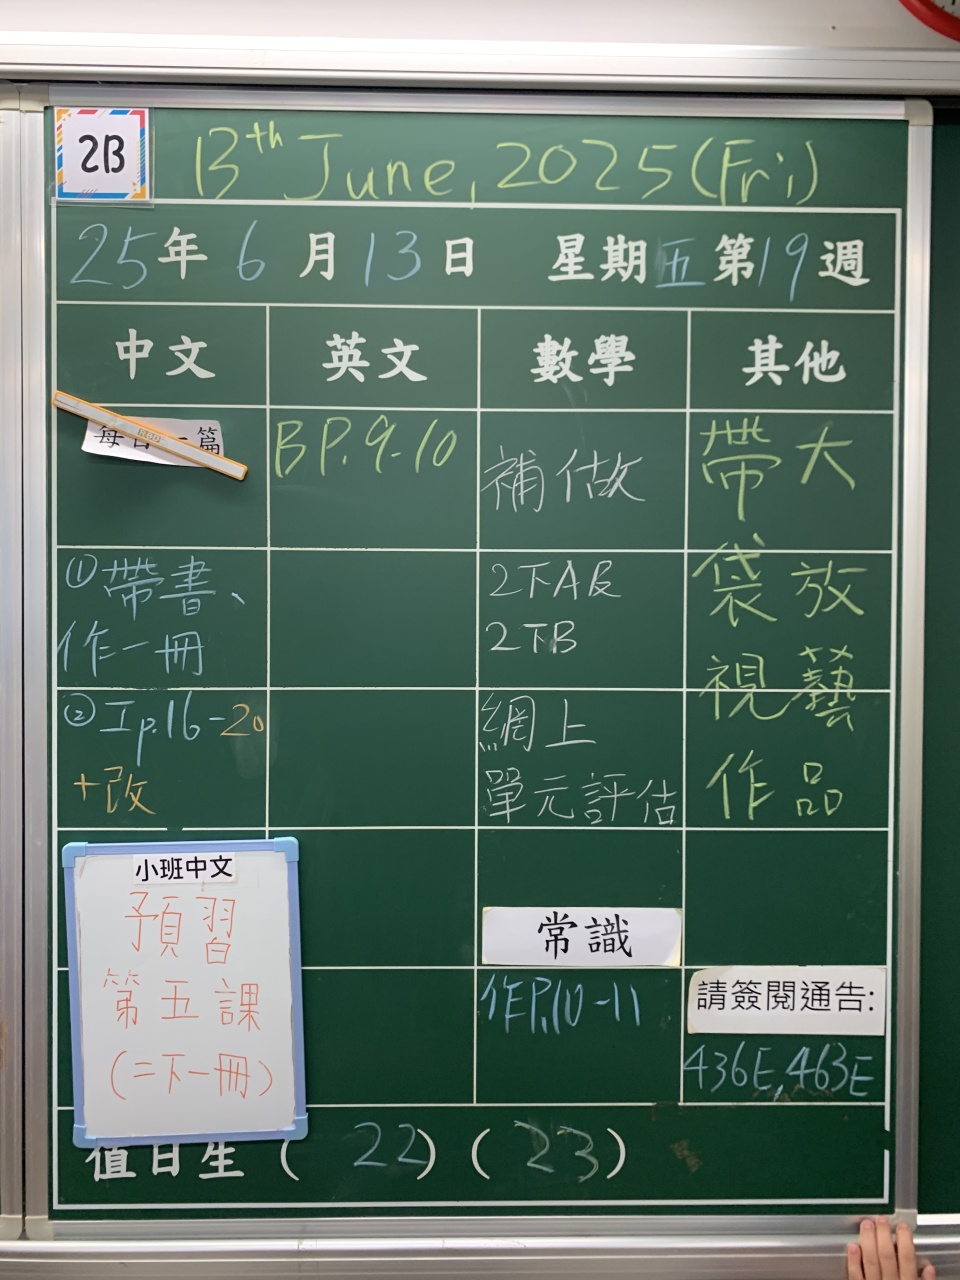 2B
13th June, 2025 (Fri)
25年 6 月 13 日 星期五第19週
中文
英文
數學
其他
每日一篇
①帶書、
作一冊
②工p.16-20
+改
小班中文
預習
第五課
(二下一冊)
BP.9-10
補估做
2下A及
2下B
網上
單元評估
常識
作P.10-11
帶大
袋放
視藝
作品
請簽閱通告:
436E, 463E
值日生 ( 22 ) ( 23 )